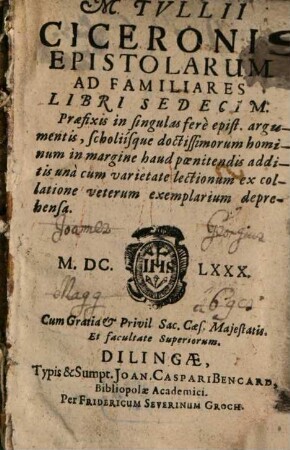 M. TVLLII
CICERONIS
EPISTOLARUM
AD FAMILIARES
LIBRI SEDECIM.
Præfixis in singulas ferè epist. argu-
mentis, scholiisque doctissimorum homi-
num in margine haud pœnitendis addi-
tis unà cum varietate lectionum ex col-
latione veterum exemplarium depre-
hensa.
Joannes Georgius
IHS
M. DC. LXXX.
Magg
Cum Gratia & Privil Sac. Cæs. Majestatis.
Et facultate Superiorum.
DILINGÆ,
Typis & Sumpt. JOAN. CASPARI BENCARD,
Bibliopolæ Academici.
Per FRIDERICUM SEVERINUM GROCH.